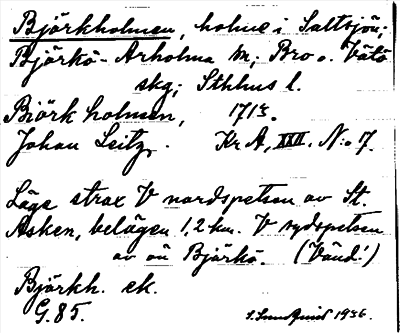 Björkholmen, holme i Saltsjön;
Björkö-Arholma sn; Bro o. Vätö
skg; Sthlms l.
Biörk holmen, 1713.
Johan Leitz. Kr A, XXII. N:o 7.
Låg strax V nordspetsen av St.
Asken, belägen 1,2 km. V sydspetsen
av ön Björkö. (Vänd!)
Björkh. ek.
G. 85.
1936.